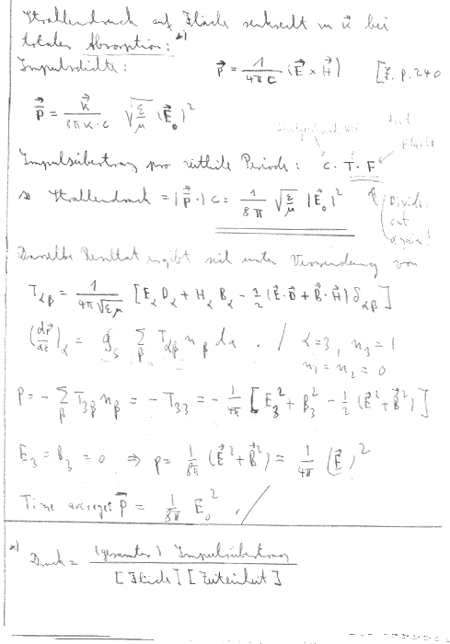 Strahlendruck auf Fläche senkrecht zu k⃗ bei
totaler Absorption: *)
Impulsdichte: p⃗ = 1/(4πc) (E⃗ × H⃗) [J. p. 240
p⃗ = k⃗/(8πk·c) √(ε/μ) (E⃗₀)²
Fläche
Impulsübertrag pro zeitliche Periode: c · T · F
⇒ Strahlendruck = |p⃗·| c = 1/(8π) √(ε/μ) |E⃗₀|²
Divide
out
again!
Dasselbe Resultat ergibt sich unter Verwendung von
T_αβ = 1/(4π√(εμ)) [E_α D_α + H_α B_α − ½ (E⃗·D⃗ + B⃗·H⃗) δ_αβ]
(dP⃗/dt)_α = ∮_S Σ_β T_αβ n_β da . / α=3, n₃=1
n₁ = n₂ = 0
p = − Σ_β T_3β n_β = − T₃₃ = − 1/4π [E₃² + B₃² − ½ (E⃗² + B⃗²)]
E₃ = B₃ = 0 ⇒ p = 1/8π (E⃗² + B⃗²) = 1/4π (E⃗)²
Time average: p̄ = 1/8π E₀² ./
*) Druck = (gesamter) Impulsübertrag / [Fläche] [Zeiteinheit]